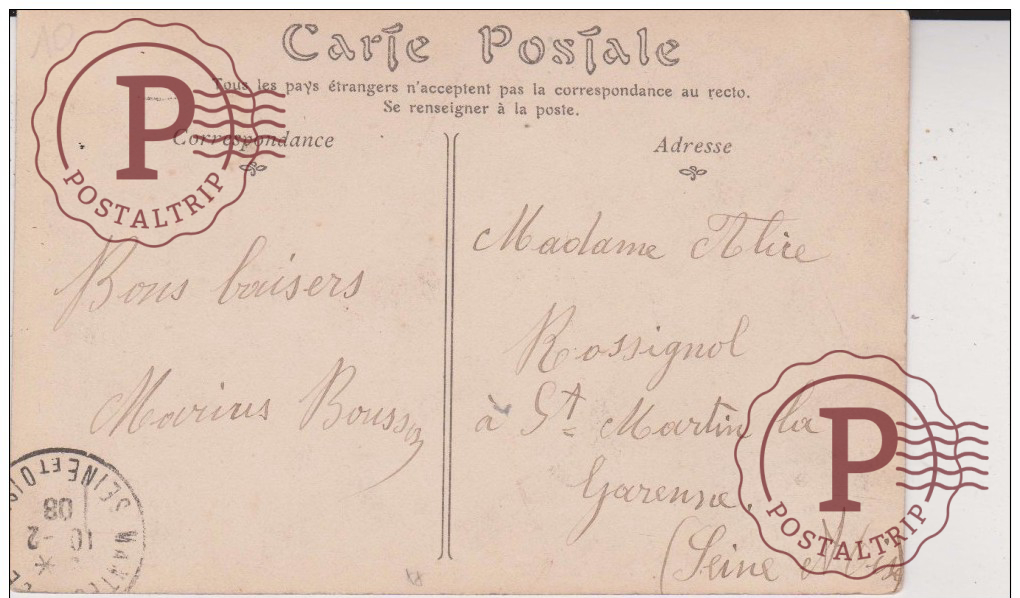 10
Carte Postale
Tous les pays étrangers n'acceptent pas la correspondance au recto.
Se renseigner à la poste.
Correspondance
Adresse
P
POSTALTRIP
Bons baisers
Marius
Madame Alice
Rossignol
à St Martin la
Garenne.
(Seine et
P
POSTALTRIP
SEINE ET OIS
10-2
08